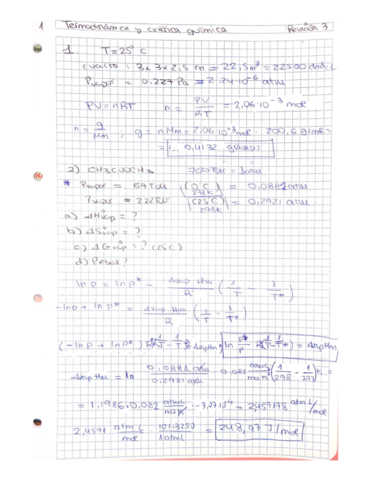 1 Termodinámica y cinética química Relación 3
1. T=25°C
cuarto: 3x3x2,5 m = 22,5m³ = 22500 dm³=L
Pvapor = 0,227 Pa = 2.24·10⁻⁶ atm
PV=nRT n = PV/RT = 2,06·10⁻³ mol
n = g/Mm, g = n·Mm = 2,06·10⁻³ mol · 200,6 g/mol =
= 0,4132 g
2) CH3COCH3 760 Torr = 1 atm
* Pvapor = 67 Torr (0°C) 273K = 0,0881 atm
Pvapor = 222 Torr (25°C) 298K = 0,2921 atm
a) ΔH°vap = ?
b) ΔS°vap = ?
c) ΔG°vap = ? (25°C)
d) Pebull?
ln p = ln p* - Δvap Hm/R (1/T - 1/T*)
-ln p + ln p* = Δvap Hm/R (1/T - 1/T*)
(-ln p + ln p*) = ΔvapHm
Δvap Hm = ln 0,0881 atm/0,2921 atm · 0,082 (1/298 - 1/273) K =
= 1,1986 · 0,082 atm L/mol K · -3,07·10⁻⁴ = 2,459178 atm L/mol
2,4591 atm L/mol · 101,3250/1 atm L = 248,97 J/mol